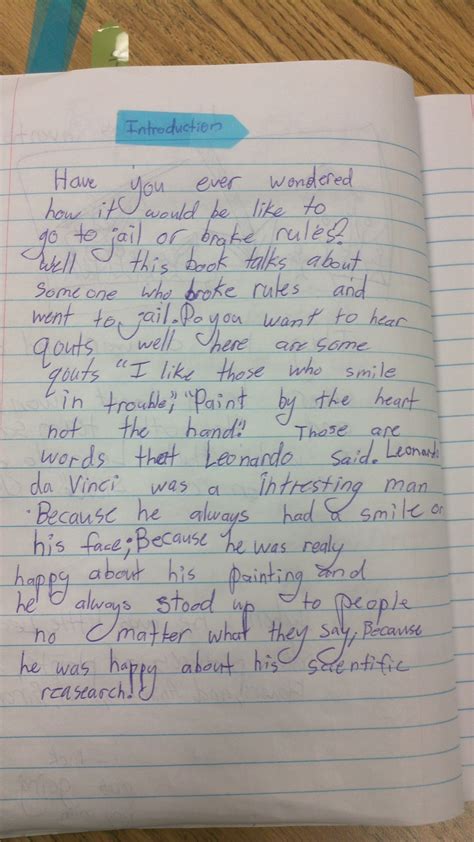 Introduction
Have you ever wondered
how it would be like to
go to jail or brake rules?
well this book talks about
someone who broke rules and
went to jail. Do you want to hear
qouts well here are some
qouts "I like those who smile
in trouble", "Paint by the heart
not the hand". Those are
words that Leonardo said. Leonardo
da Vinci was a Intresting man
Because he always had a smile on
his face; Because he was realy
happy about his Painting and
he always stood up to people
no matter what they say, Because
he was happy about his scientific
reasearch.